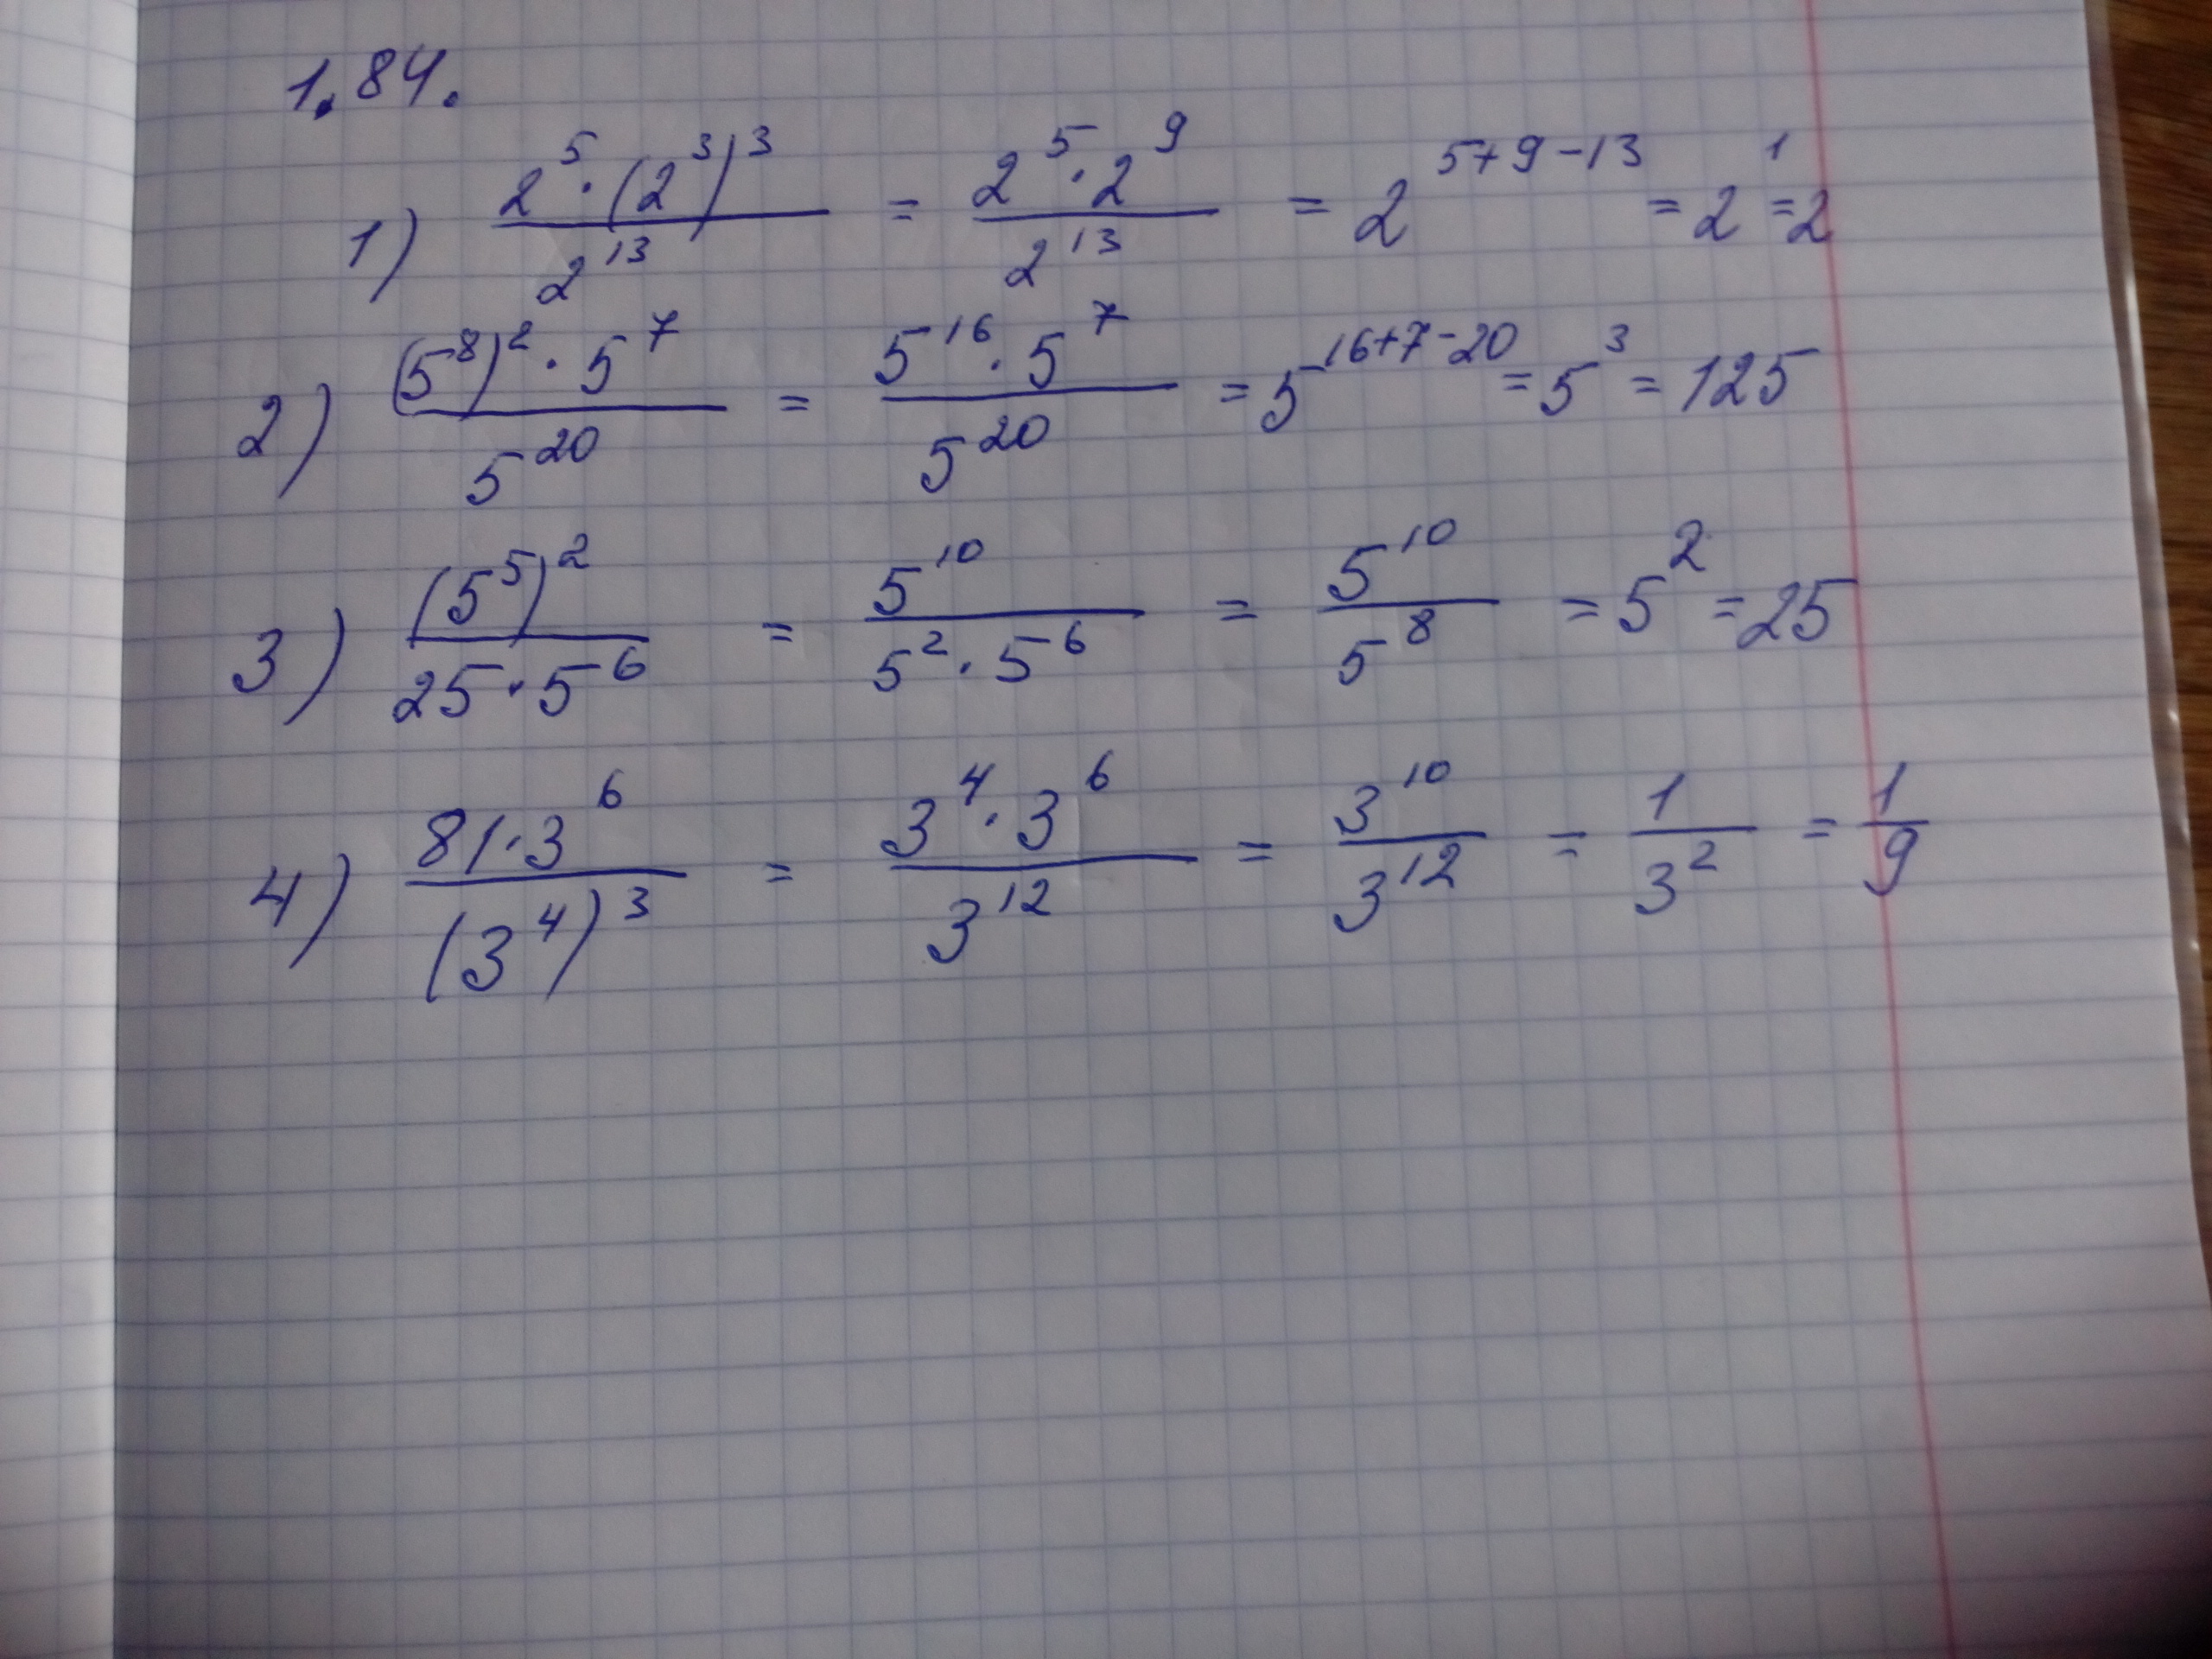 1.84.
1) (2^5 · (2^3)^3) / 2^13 = (2^5 · 2^9) / 2^13 = 2^(5+9-13) = 2^1 = 2
2) ((5^8)^2 · 5^7) / 5^20 = (5^16 · 5^7) / 5^20 = 5^(16+7-20) = 5^3 = 125
3) (5^5)^2 / (25 · 5^6) = 5^10 / (5^2 · 5^6) = 5^10 / 5^8 = 5^2 = 25
4) (81 · 3^6) / (3^4)^3 = (3^4 · 3^6) / 3^12 = 3^10 / 3^12 = 1 / 3^2 = 1 / 9